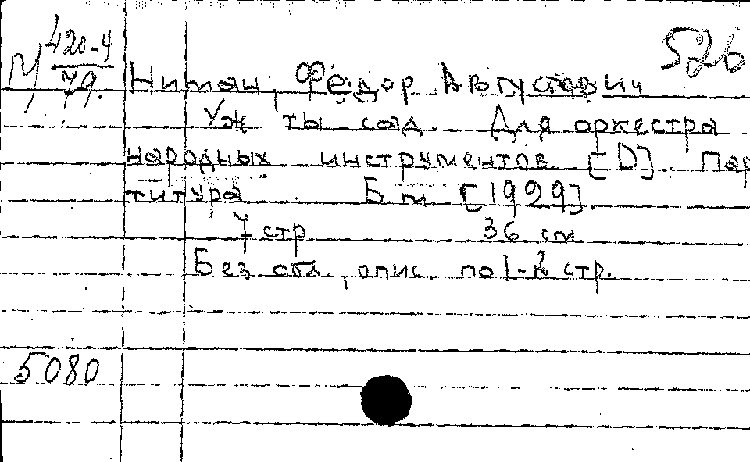 526
М 420-4
79.
Ниман, Федор Августович
Уж ты сад. Для оркестра
народных инструментов [D]. Пар
титура Б.м. [1929].
7 стр 36 см
Без обл., опис. по 1-й стр.
5080